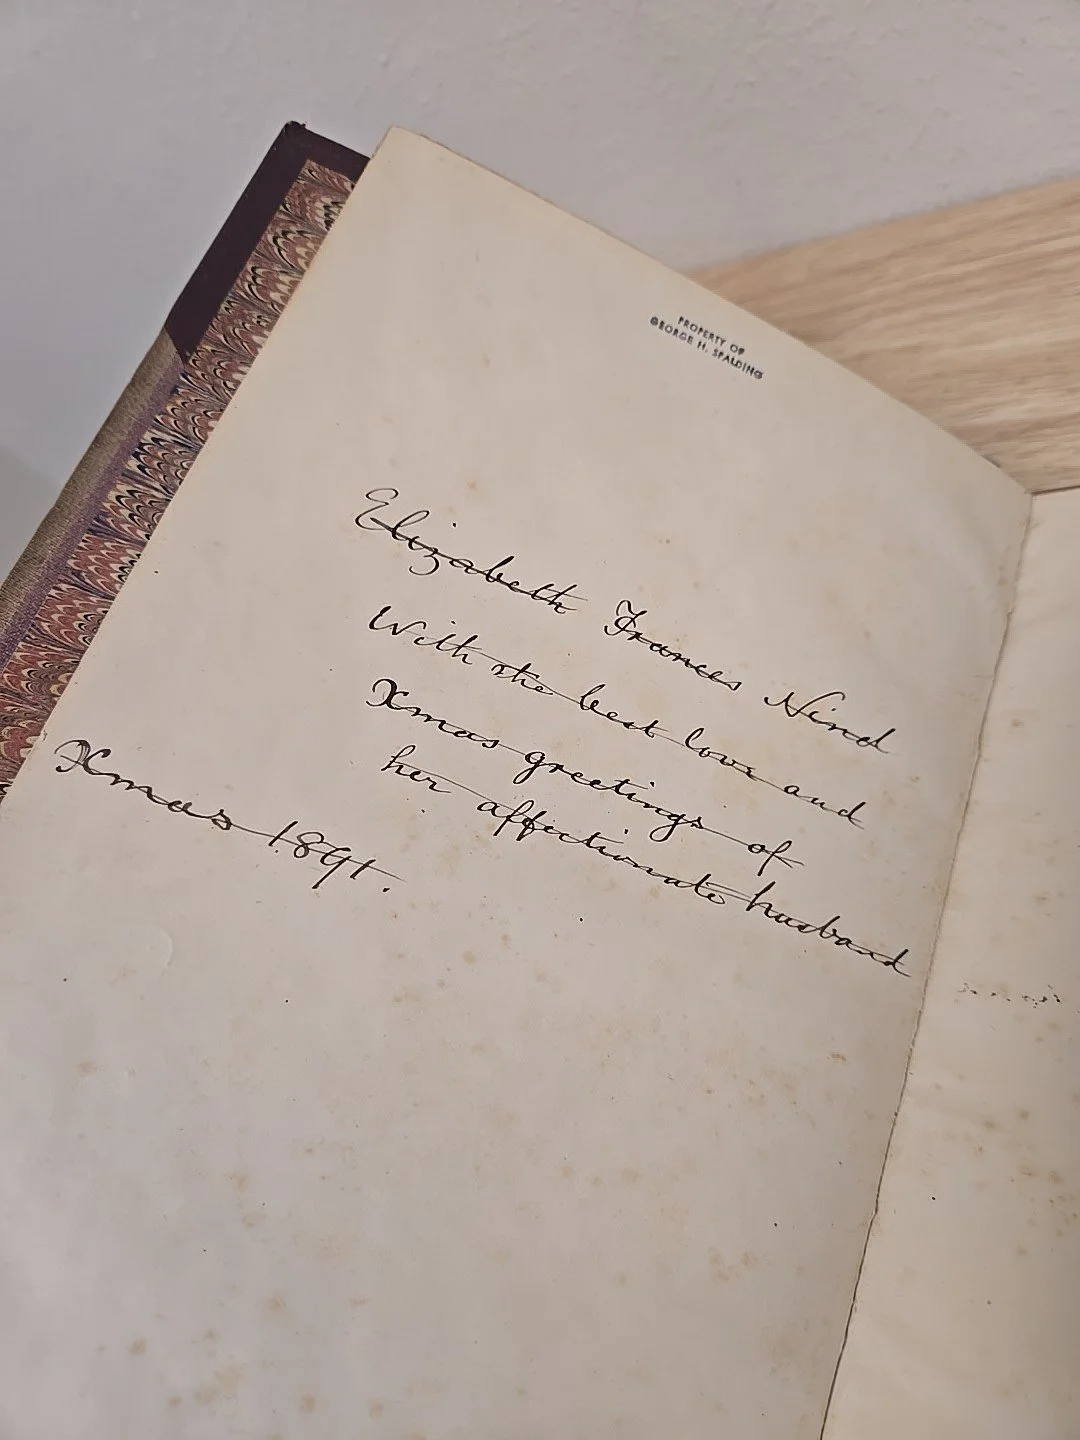 PROPERTY OF
GEORGE H. SPALDING
Elizabeth Frances Nind
With the best love and
Xmas greetings of
her affectionate husband
Xmas 1891.